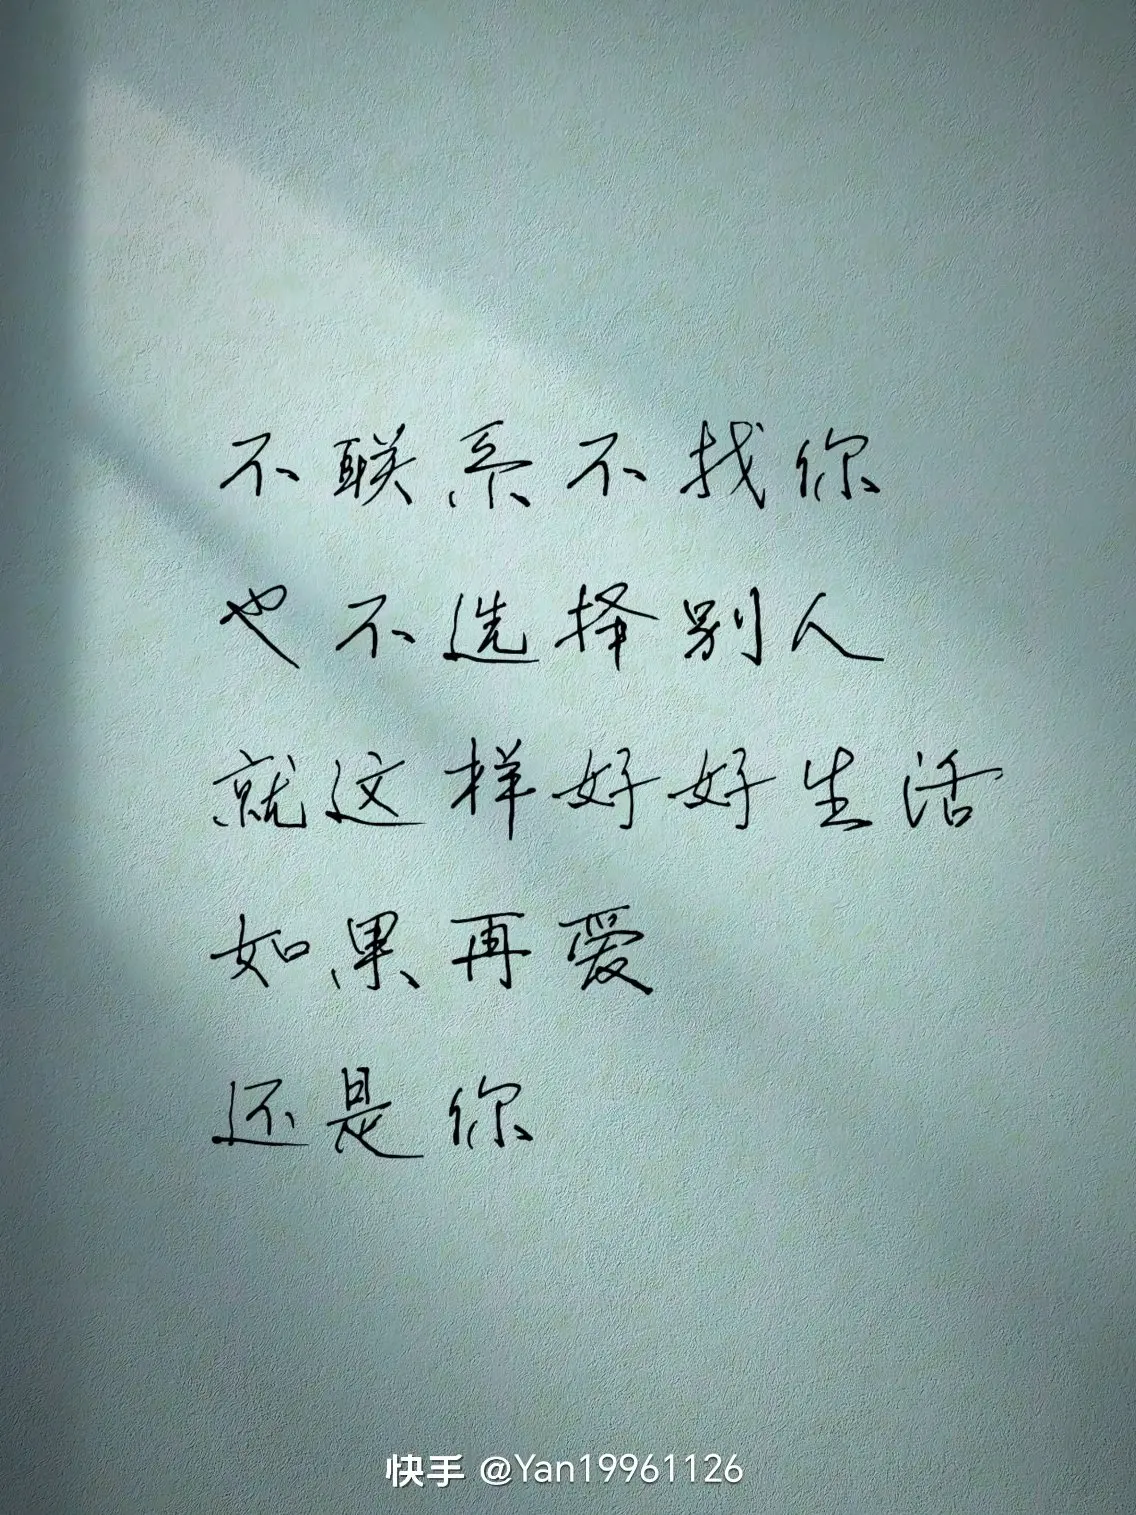 不联系不找你
也不选择别人
就这样好好生活
如果再爱
还是你
快手 @Yan19961126